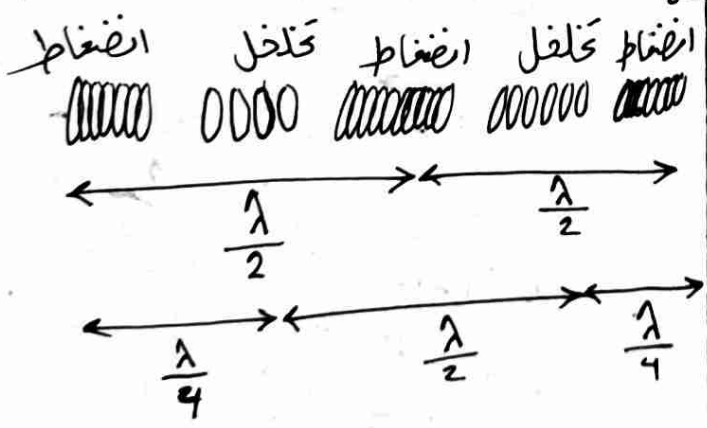 انضغاط تخلخل انضغاط تخلخل انضغاط
λ/2 λ/2
λ/4 λ/2 λ/4